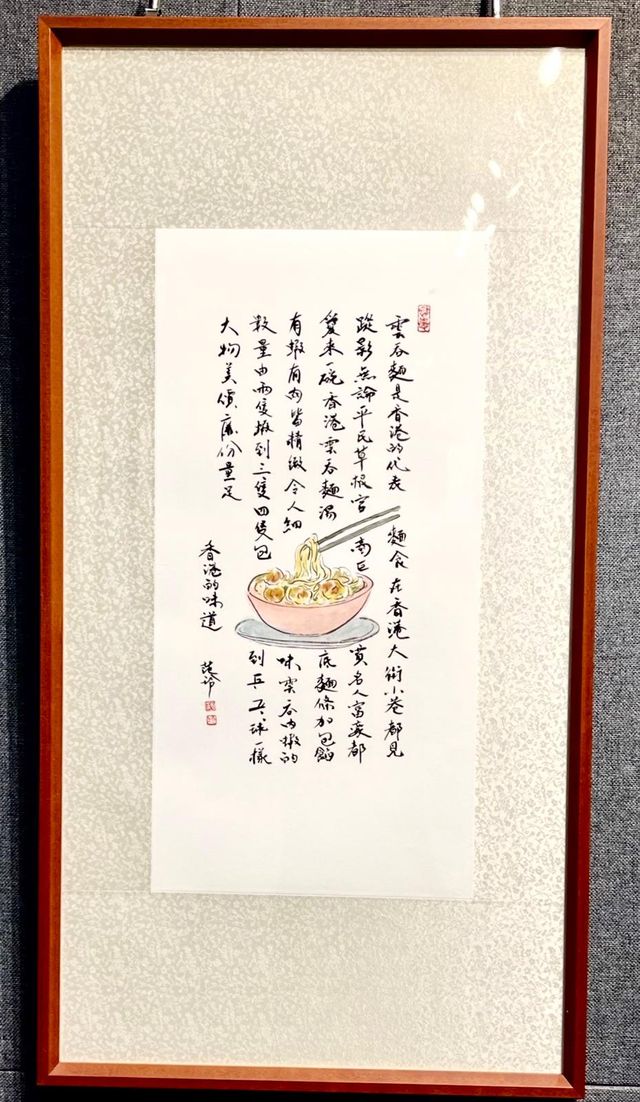 雲吞麵是香港的代表麵食在香港大街小巷都見
蹤影無論平民草根官商巨賈名人富豪都
愛來一碗香港雲吞麵湯底麵條加包餡
有蝦有肉皆精緻令人細味雲吞內蝦的
數量由兩隻蝦到三隻四隻包到乒乓球一樣
大物美價廉份量足
香港的味道